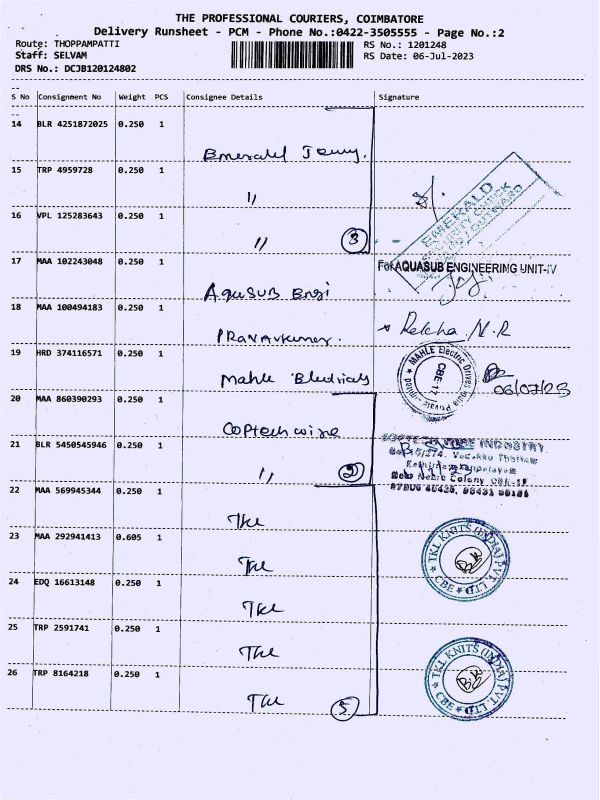 THE PROFESSIONAL COURIERS, COIMBATORE
Delivery Runsheet - PCM - Phone No.:0422-3505555 - Page No.:2
Route: THOPPAMPATTI RS No.: 1201248
Staff: SELVAM RS Date: 06-Jul-2023
DRS No.: DCJB120124802
S No Consignment No Weight PCS Consignee Details Signature
14 BLR 4251872025 0.250 1
Emerald
15 TRP 4959728 0.250 1
"
EMERALD
16 VPL 125283643 0.250 1
" 3
17 MAA 102243048 0.250 1
For AQUASUB ENGINEERING UNIT-IV
AquSUB Engi
18 MAA 100494183 0.250 1
PRanavkumar. Rekha N.R
19 HRD 374116571 0.250 1
MAHLE Electric Drives India Private Limited
CBE 17
Mahle Electricals 06/07/23
20 MAA 860390293 0.250 1
Coptech wire
21 BLR 5450545946 0.250 1
" 2
22 MAA 569945344 0.250 1
TKL
23 MAA 292941413 0.605 1
TKL
TKL KNITS (INDIA) PVT. LTD
CBE
24 EDQ 16613148 0.250 1
TKL
25 TRP 2591741 0.250 1
TKL
26 TRP 8164218 0.250 1
TKL KNITS (INDIA) PVT. LTD
CBE
TKL 5